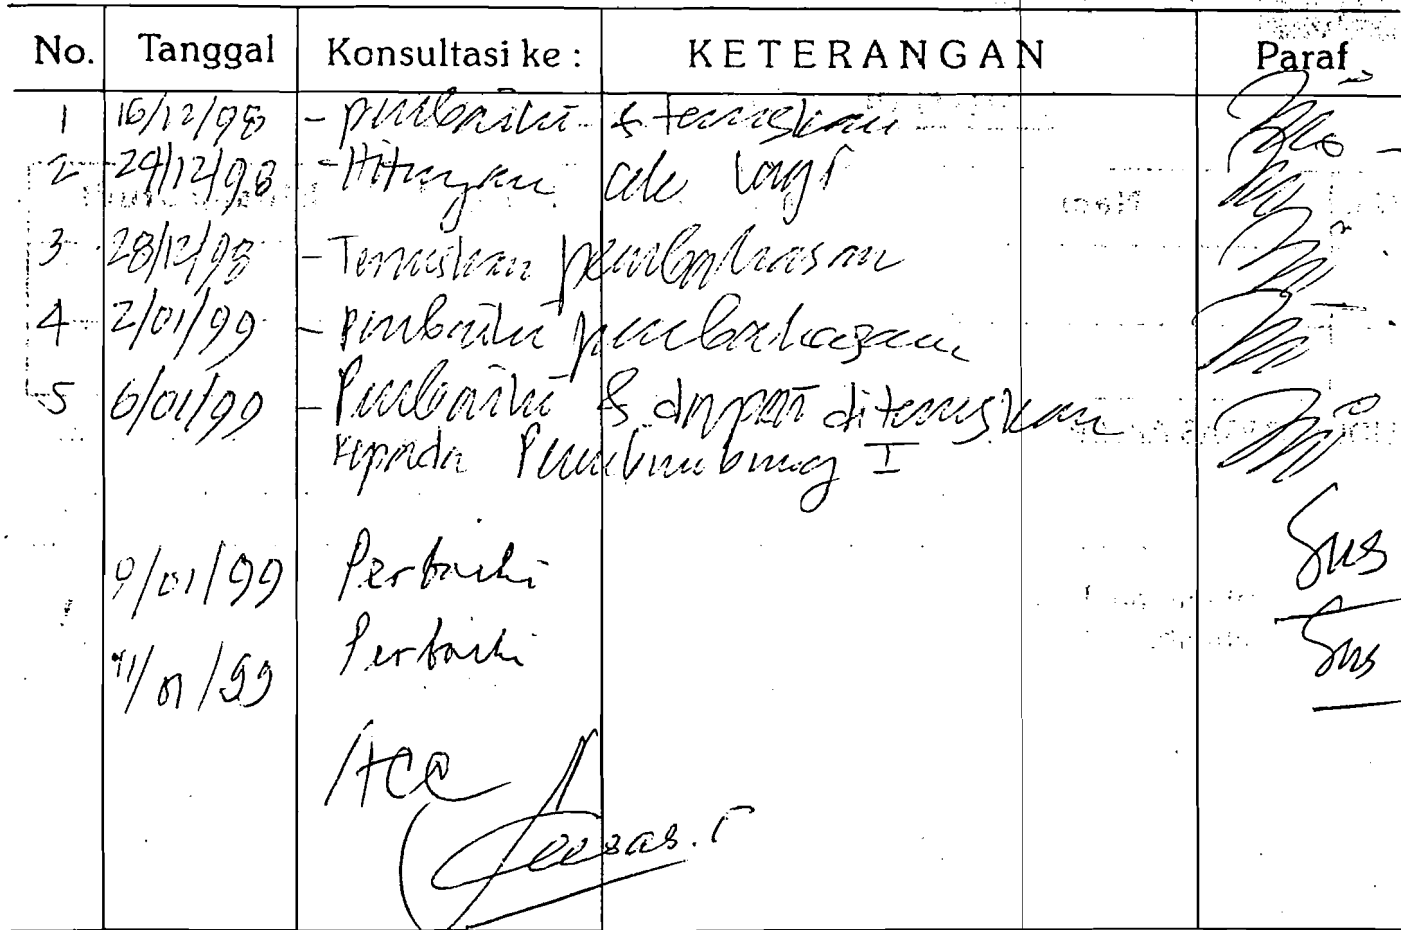 No. Tanggal Konsultasi ke : KETERANGAN Paraf
1 16/12/98 - perbaiki & teruskan
2 24/12/98 - Hitungan cek lagi
3 28/12/98 - Teruskan pembahasan
4 2/01/99 - perbaiki pembahasan
5 6/01/99 - Perbaiki & dapat diteruskan
kepada Pembimbing I
9/01/99 Perbaiki Sus
11/01/99 Perbaiki Sus
Acc